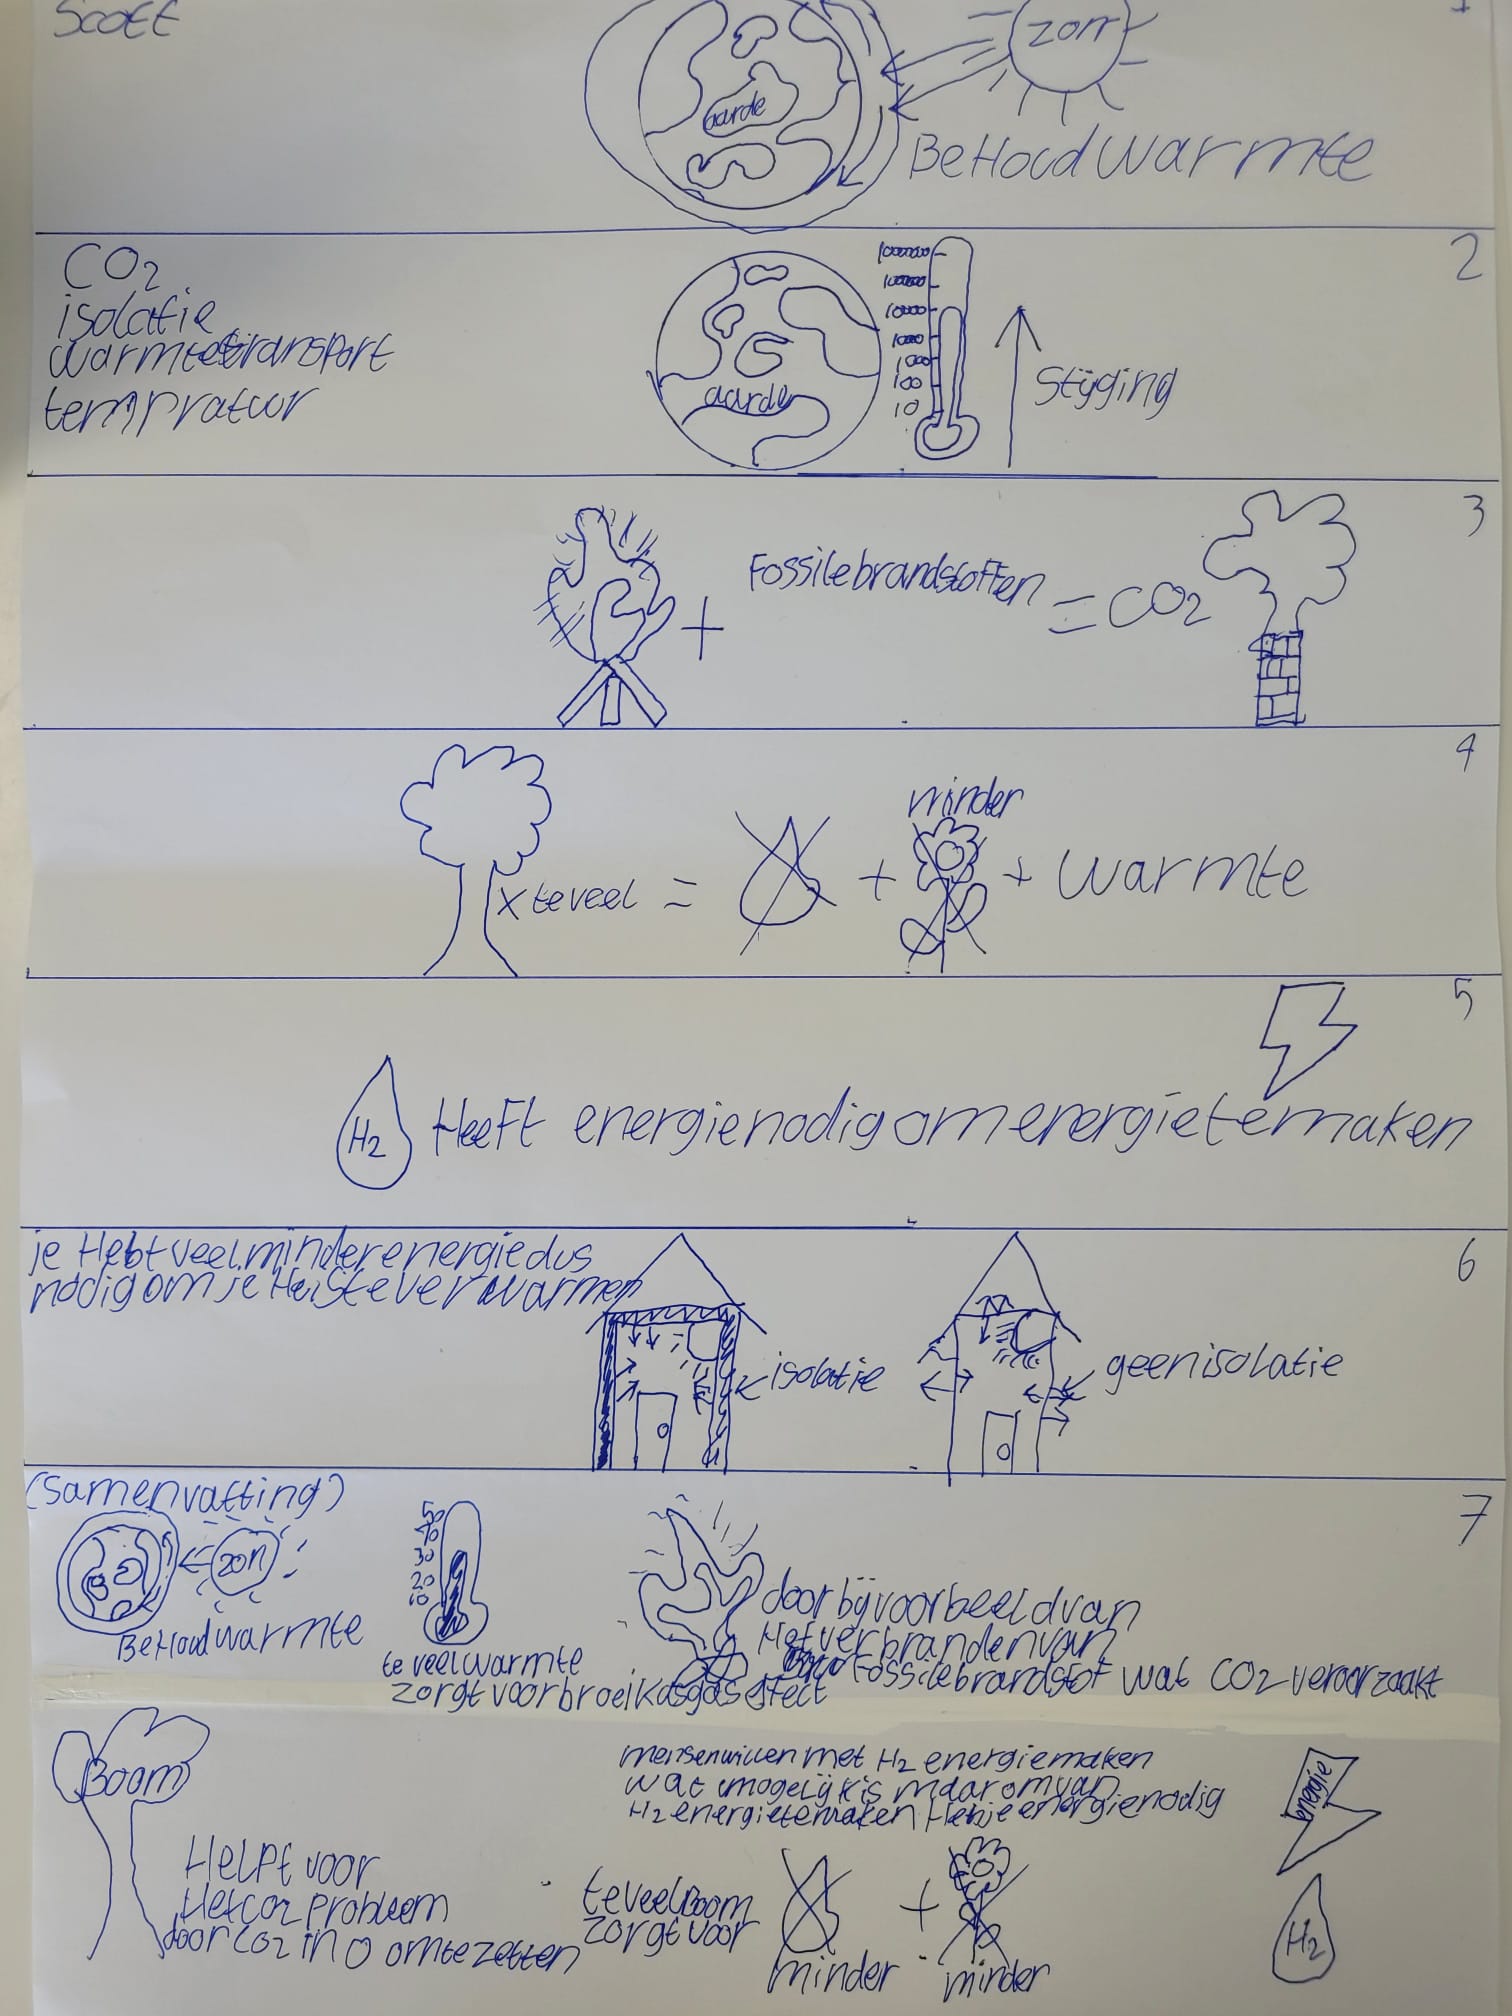 Scott
1
zon
aarde
BeHoud warmte
2
CO2
isolatie
warmtetransport
tempratuur
1000000
100000
10000
1000
1000
100
10
aarde
Stijging
3
+ Fossilebrandstoffen = CO2
4
minder
x te veel = + + warmte
5
H2 HeeFt energie nodig om energie te maken
6
je Hebt veel minder energie dus
nodig om je Huis te verwarmen
isolatie
geen isolatie
7
(Samenvatting)
zon
BeHoud warmte
50
40
30
20
10
te veel warmte
zorgt voor broeikasgas effect
door bijvoorbeeld van
Het verbranden van
Fossilebrandstof wat CO2 veroorzaakt
Boom
HelPt voor
Het CO2 probleem
door CO2 in O om te zetten
mensen willen met H2 energie maken
wat mogelijk is maar om van
H2 energie te maken Heb je energie nodig
energie
te veel Boom
zorgt voor
+
minder
minder
H2